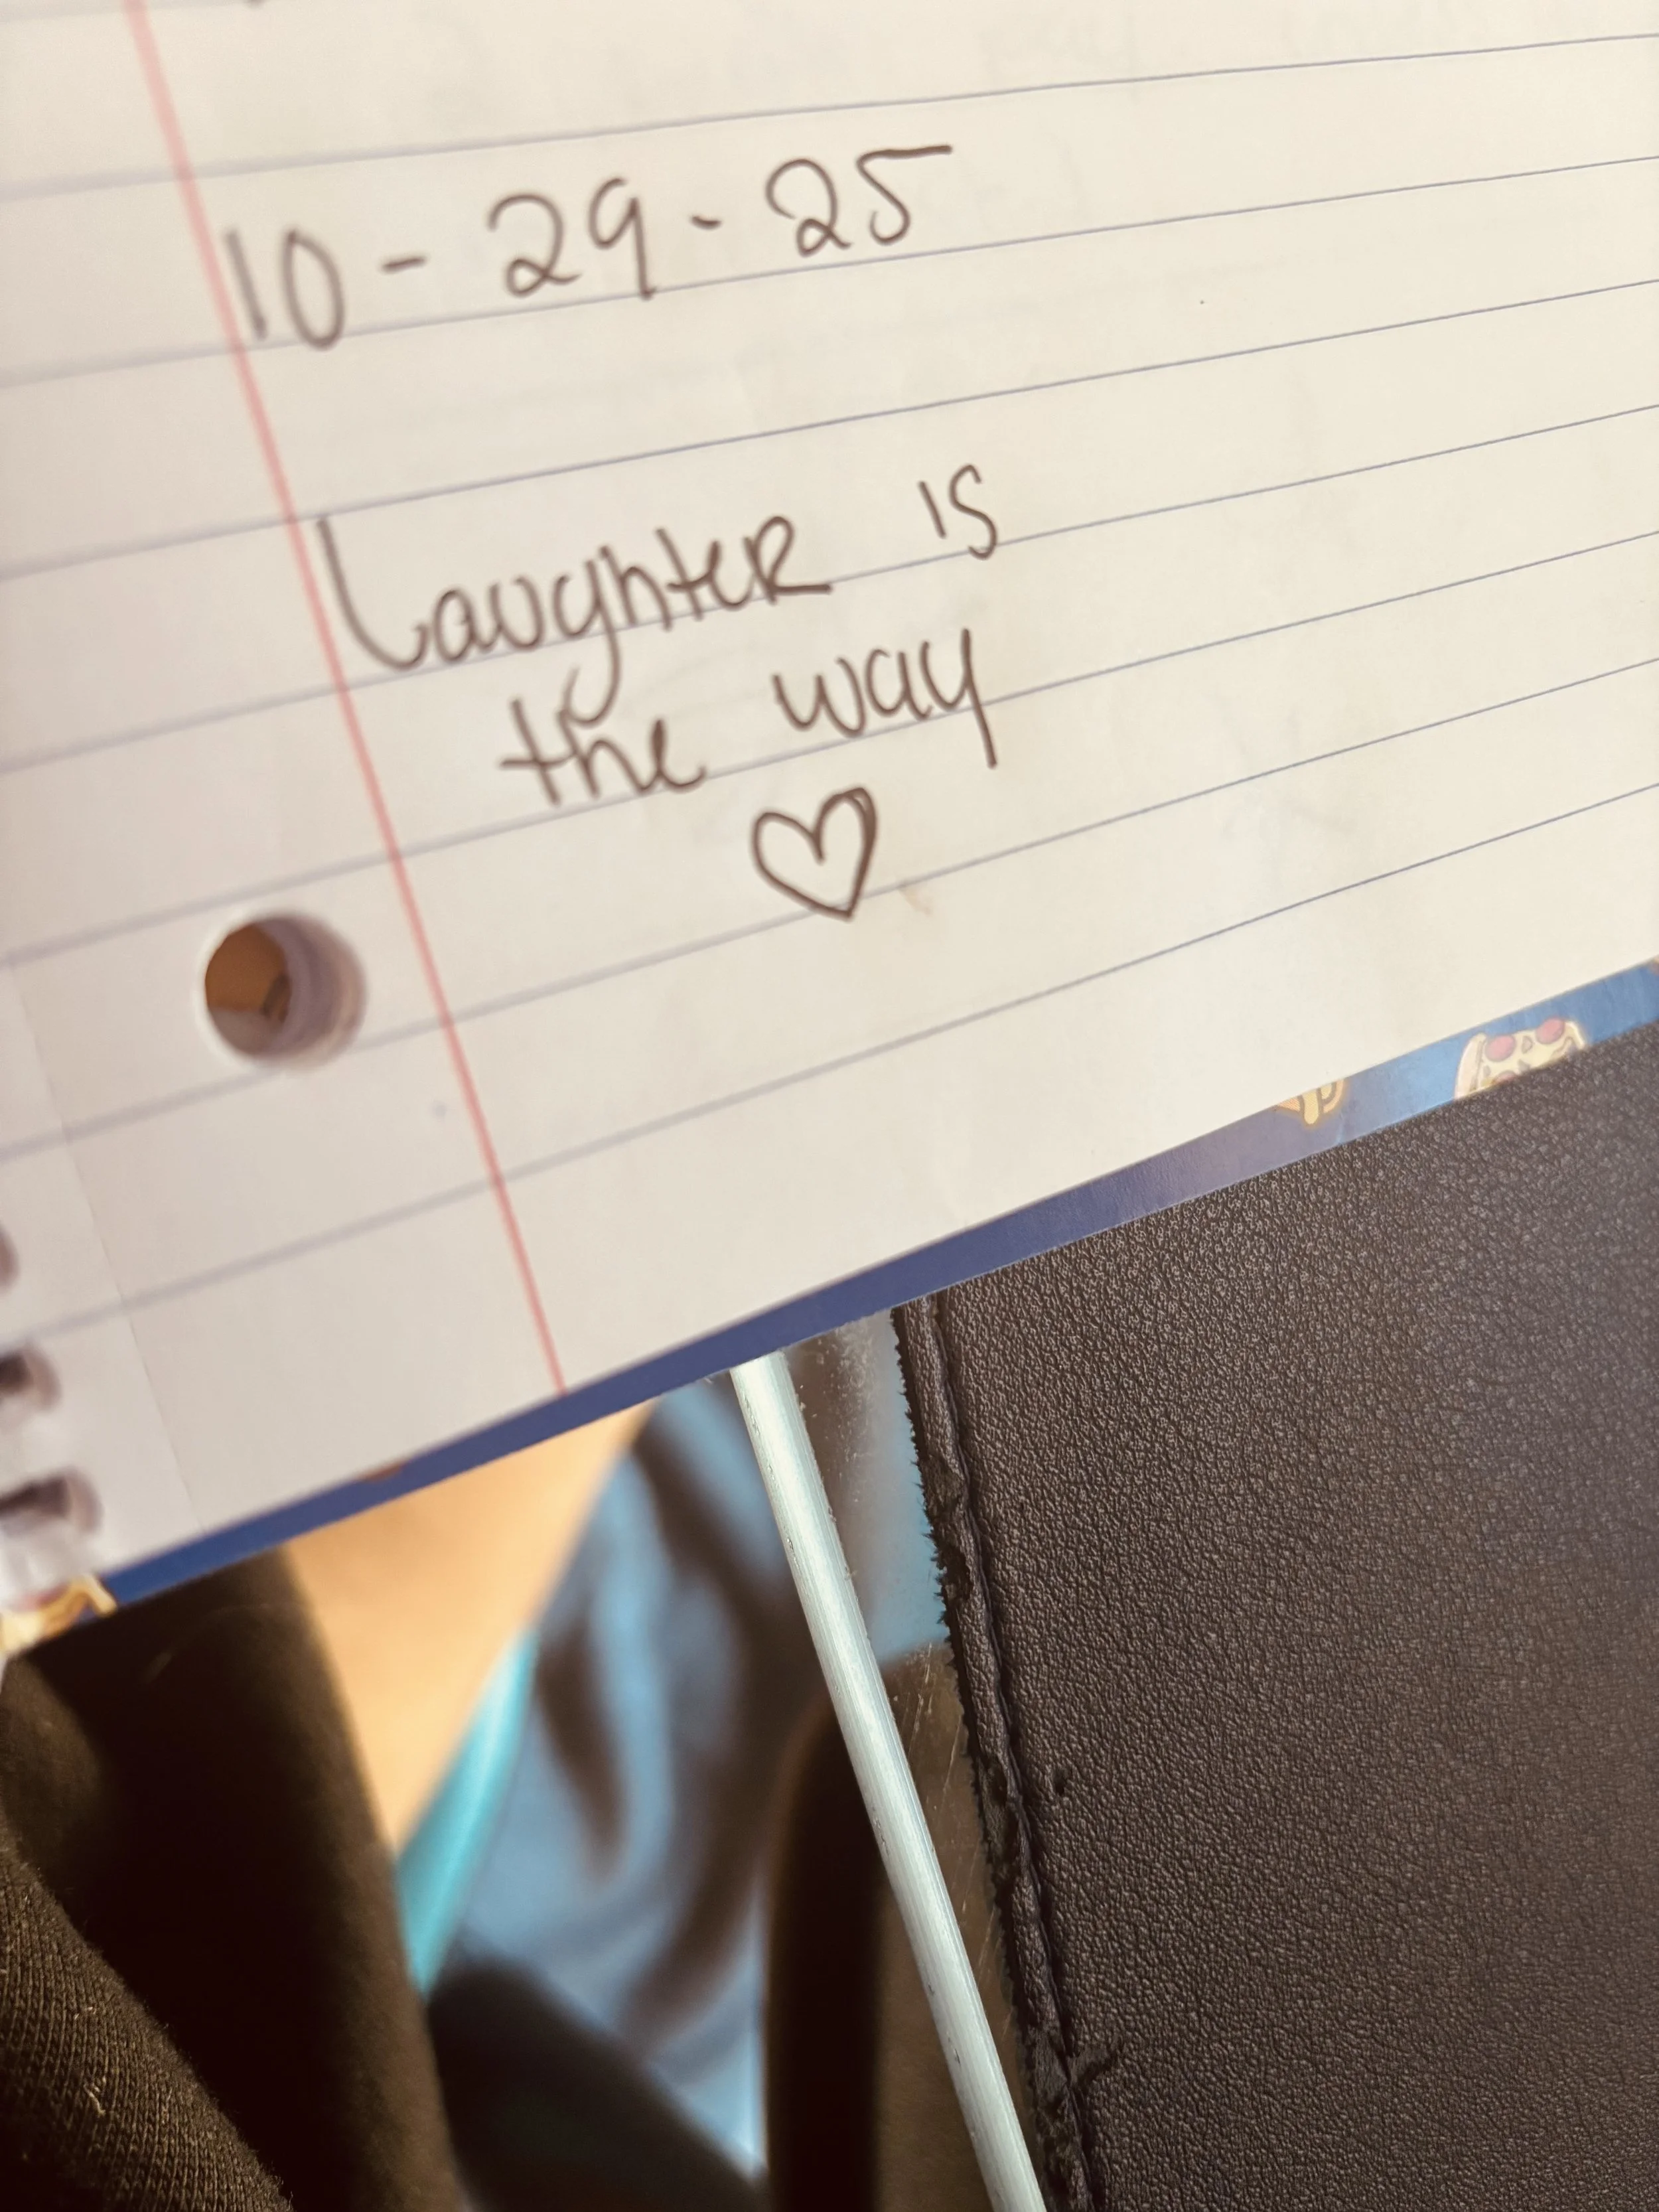 10-29-25
Laughter is
the way
♡